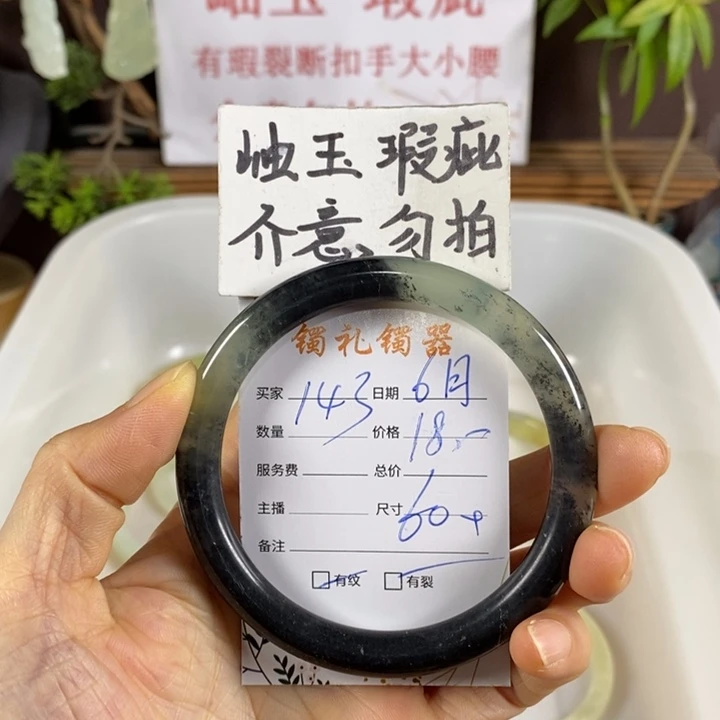 岫玉 瑕疵
有瑕裂断扣手大小腰
岫玉 瑕疵
介意勿拍
镯礼镯器
买家 143 日期 6月
数量 价格 18.-
服务费 总价
主播 尺寸 60+
备注
有纹 有裂